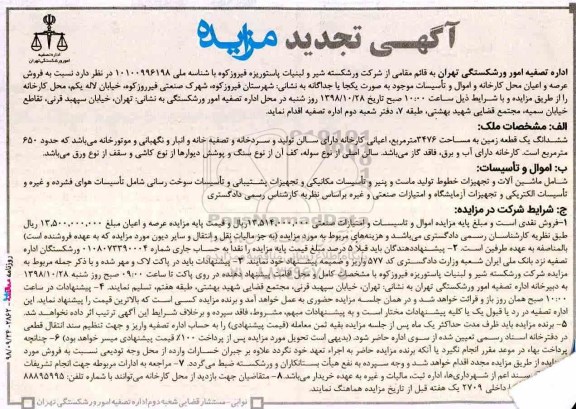 آگهی تجدید مزایده
اداره تصفیه
امور ورشکستگی تهران
اداره تصفیه امور ورشکستگی تهران به قائم مقامی از شرکت ورشکسته شیر و لبنیات پاستوریزه فیروزکوه با شناسه ملی ۱۰۱۰۰۹۹۶۱۹۸ در نظر دارد نسبت به فروش
عرصه و اعیان محل کارخانه و اموال و تأسیسات موجود به صورت یکجا یا جداگانه به نشانی: شهرستان فیروزکوه، شهرک صنعتی فیروزکوه، خیابان لاله یکم، محل کارخانه
را از طریق مزایده و با شرایط ذیل ساعت ۱۰:۰۰ صبح تاریخ ۱۳۹۸/۱۰/۲۸ روز شنبه در محل اداره تصفیه امور ورشکستگی به نشانی: تهران، خیابان سپهبد قرنی، تقاطع
خیابان سمیه، مجتمع قضایی شهید بهشتی، طبقه ۷، دفتر شعبه دوم اداره تصفیه اقدام نماید.
الف: مشخصات ملک:
ششدانگ یک قطعه زمین به مساحت ۳۴۷۶مترمربع، اعیانی کارخانه دارای سالن تولید و سردخانه و تصفیه خانه و انبار و نگهبانی و موتورخانه می‌باشد که حدود ۶۵۰
مترمربع است. کارخانه دارای آب و برق، فاقد گاز می‌باشد. سالن اصلی از نوع سوله، کف آن از نوع سنگ و پوشش دیوارها از نوع کاشی و سقف از نوع ورق می‌باشد.
ب: اموال و تأسیسات:
شامل ماشین آلات و تجهیزات خطوط تولید ماست و پنیر و تأسیسات مکانیکی و تجهیزات پشتیبانی و تأسیسات سوخت رسانی شامل تأسیسات هوای فشرده و غیره و
تأسیسات الکتریکی و تجهیزات آزمایشگاه و امتیازات صنعتی و غیره براساس نظریه کارشناس رسمی دادگستری
ج: شرایط شرکت در مزایده:
۱-فروش نقدی است و مبلغ پایه مزایده اموال و تاسیسات و امتیازات صنعتی ریال و قیمت پایه مزایده عرصه و اعیان مبلغ ۱۳,۵۰۰,۰۰۰,۰۰۰ ریال
طبق نظریه کارشناسان رسمی دادگستری می‌باشد و هزینه‌های مربوط به مورد مزایده (به جز مالیات نقل و انتقال و سایر دیون مورد مزایده که به عهده فروشنده است)
بالمناصفه به عهده طرفین است. ۲- پیشنهاددهندگان باید قبلا ۵ درصد مبلغ قیمت پایه مزایده را نقدا به حساب جاری شماره ۰۱۰۸۰۷۳۳۹۰۰۰۴ ورشکستگان اداره
تصفیه نزد بانک ملی ایران شعبه وزارت دادگستری کد ۵۷۷ واریز و ضمیمه پیشنهاد خود نمایند. ۳- پیشنهادات باید در پاکت لاک و مهر شده و با ذکر جمله مربوط به
مزایده شرکت ورشکسته شیر و لبنیات پاستوریزه فیروزکوه با مشخصات کامل و محل اقامت پیشنهاد دهنده در روی پاکت تا ساعت ۰۹:۰۰ صبح روز شنبه ۱۳۹۸/۱۰/۲۸
به دبیرخانه اداره تصفیه امور ورشکستگی تهران به نشانی: تهران، خیابان سپهبد قرنی، مجتمع قضایی شهید بهشتی، طبقه هفتم، تسلیم نمایند. ۴- پیشنهادات در ساعت
۱۰:۰۰ صبح همان روز باز و قرائت خواهد شد و در همان جلسه مزایده حضوری به عمل خواهد آمد و برنده مزایده کسی است که بالاترین قیمت را پیشنهاد نماید. این
اداره تصفیه در رد یا قبول یک یا کلیه پیشنهادات مختار است و به پیشنهادات مبهم، مشروط، فاقد سپرده و برخلاف شرایط این آگهی ترتیب اثر داده نخواهد شد.
۵- برنده مزایده باید ظرف مدت حداکثر یک ماه پس از جلسه مزایده بقیه ثمن معامله (قیمت پیشنهادی) را به حساب اداره تصفیه واریز و جهت تنظیم سند انتقال قطعی
در دفترخانه اسناد رسمی تعیین شده از سوی اداره حاضر شود. (بدیهی است تحویل مورد مزایده پس از پرداخت ۱۰۰٪ قیمت پیشنهادی میسر خواهد بود) ۶- چنانچه
پرداخت بهاء در موعد مقرر انجام نگیرد یا آنکه برنده مزایده حاضر به اجراء تعهد خود نگردد علاوه بر جبران خسارات وارده از محل وجه تودیعی نسبت به فروش مورد
مزایده از طریق مزایده مجدد اقدام خواهد شد و وجه سپرده به نفع هیأت بستانکاران و ورشکسته ضبط می‌گردد. ۷- مراجعه به ادارات مربوطه جهت انجام تشریفات
سند اعم از شهرداری‌ها، اداره ثبت، مالیات و غیره به عهده خریدار می‌باشد. ۸- متقاضیان جهت بازدید از محل کارخانه می‌توانند با شماره تلفن: ۸۸۸۹۵۹۹۵
داخلی ۲۷۰۹ یک هفته قبل از تاریخ مزایده هماهنگ نمایند.
نوابی - مستشار قضایی شعبه دوم اداره تصفیه امور ورشکستگی تهران
روزنامه